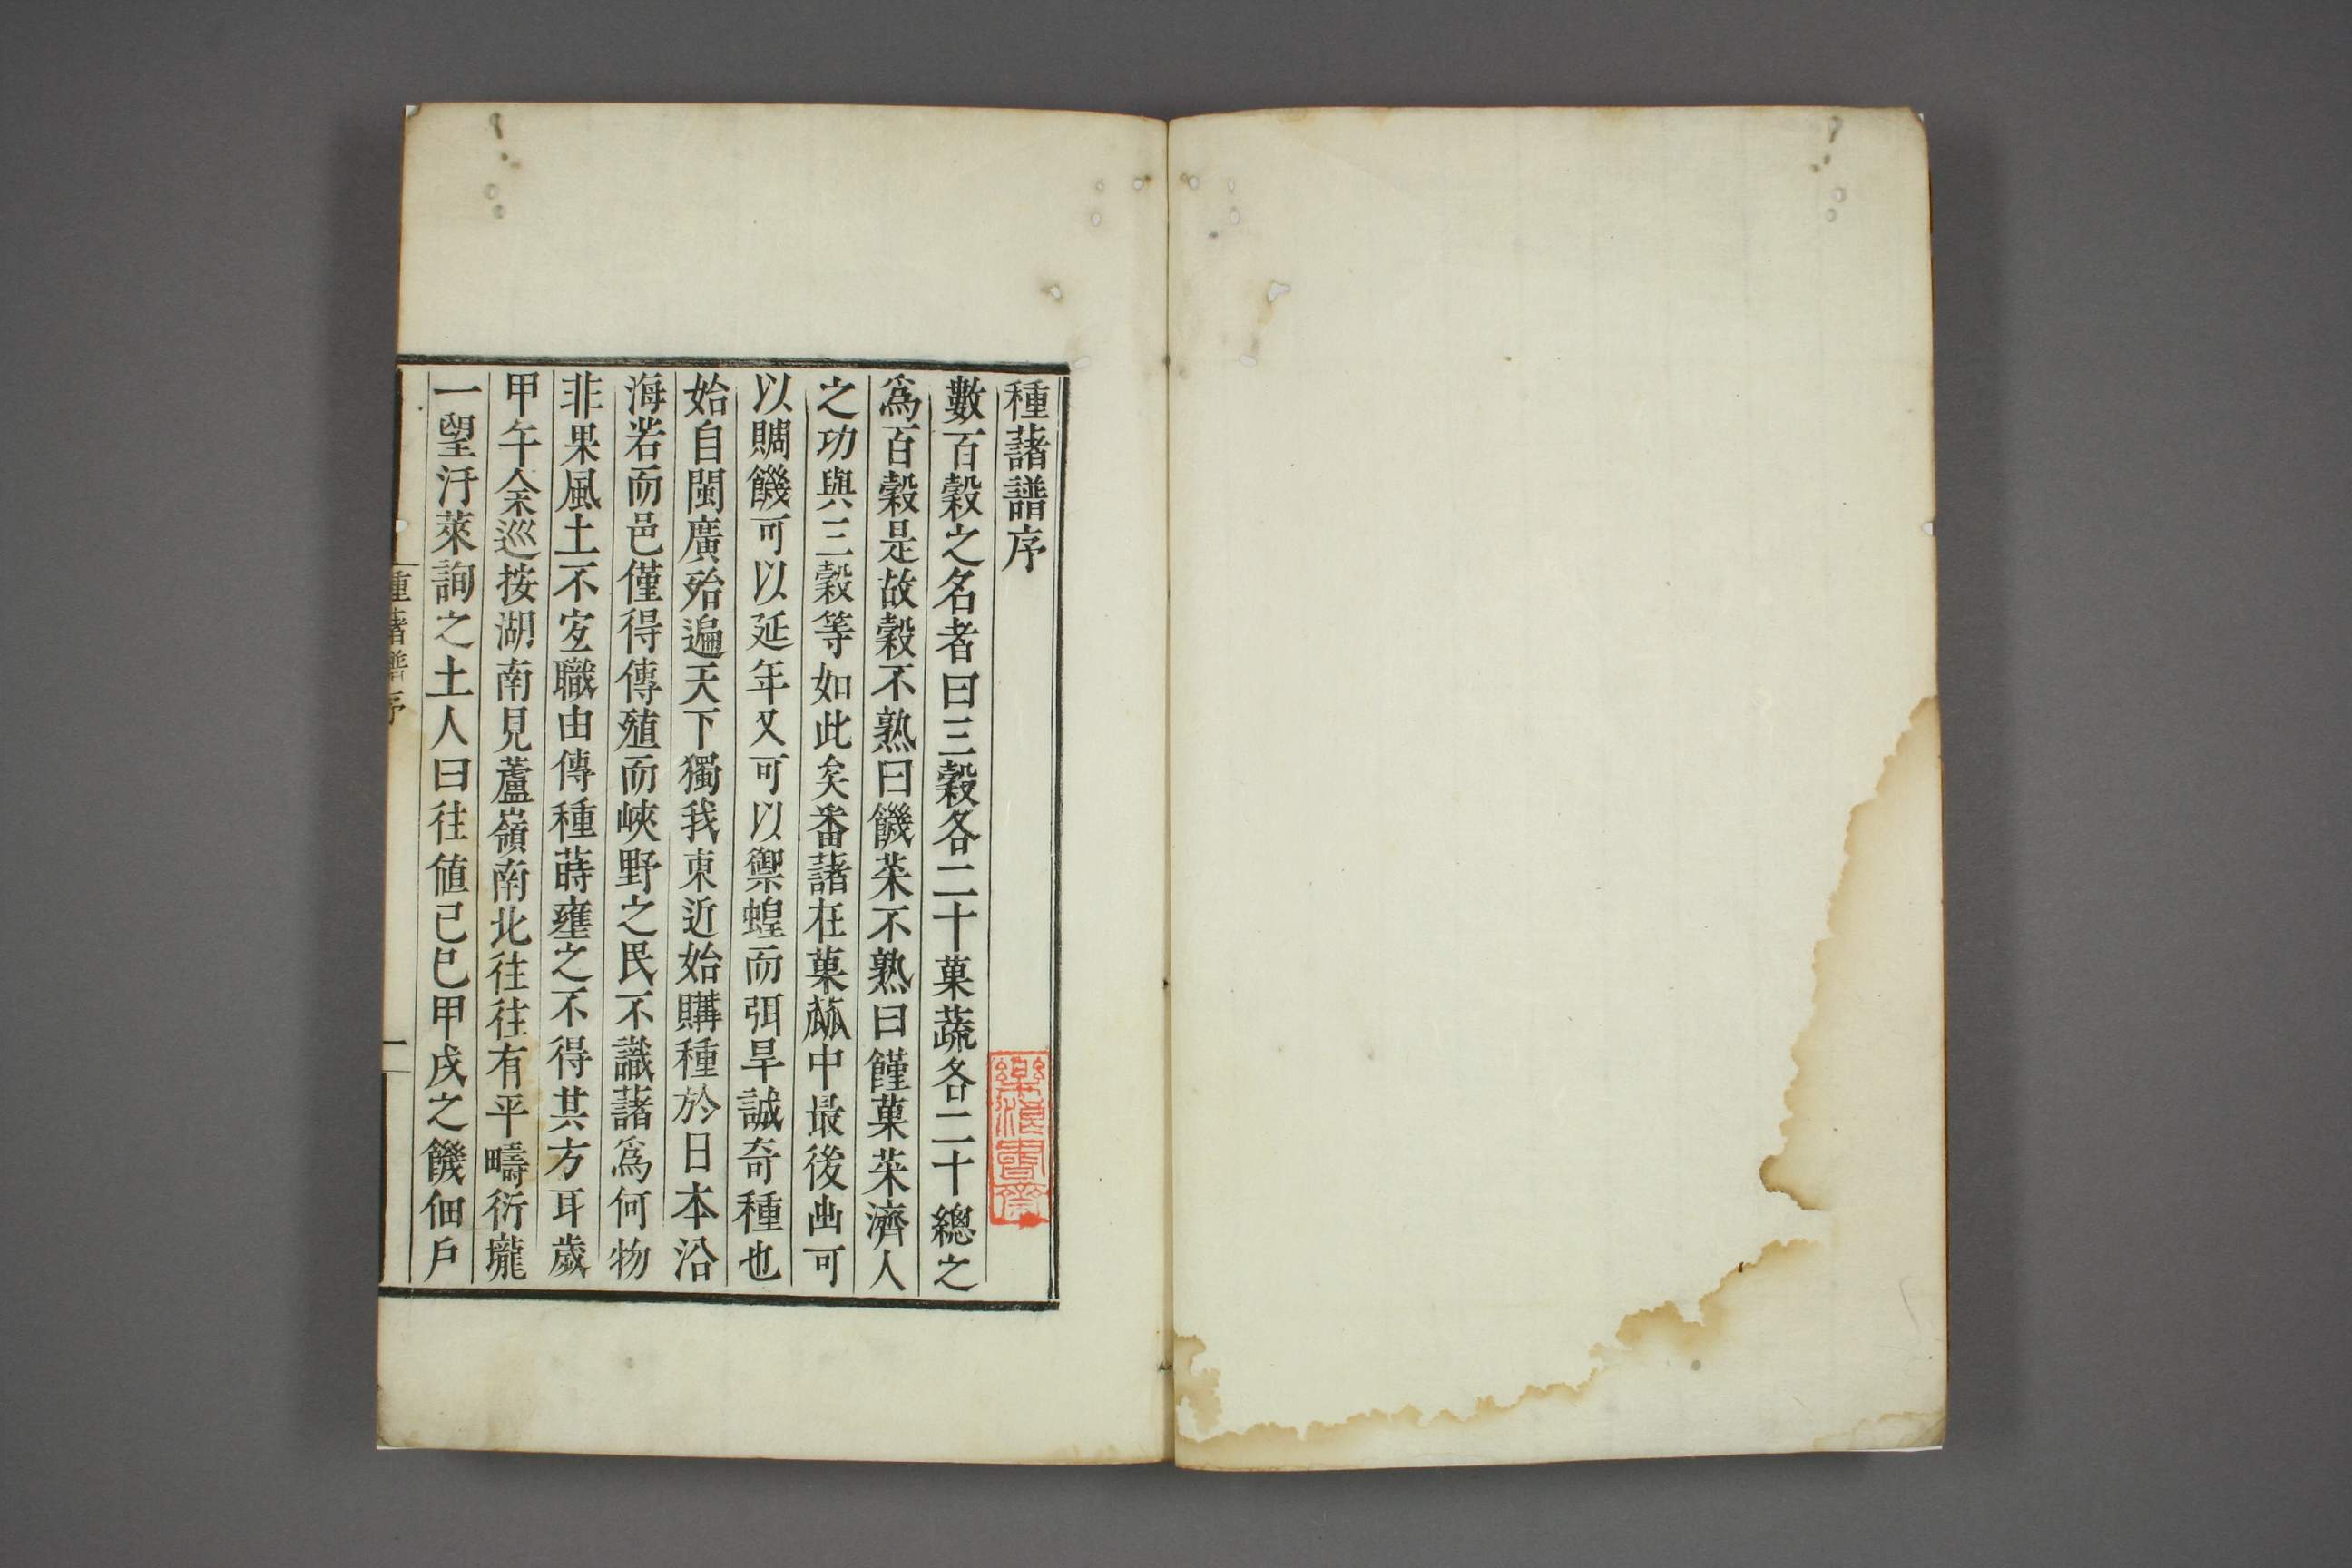 種藷譜序
數百穀之名者曰三穀各二十菓蔬各二十總之
爲百穀是故穀不熟曰饑菜不熟曰饉菓菜濟人
之功與三穀等如此矣番藷在菓蓏中最後出可
以賙饑可以延年又可以禦蝗而弭旱誠奇種也
始自閩廣殆遍天下獨我東近始購種於日本沿
海若而邑僅得傳殖而峽野之民不識藷爲何物
非果風土不宐職由傳種蒔壅之不得其方耳歲
甲午余巡按湖南見蘆嶺南北往往有平疇衍壠
一望汙萊詢之土人曰往値己巳甲戌之饑佃戶
種藷譜序
一
樂浪書齋